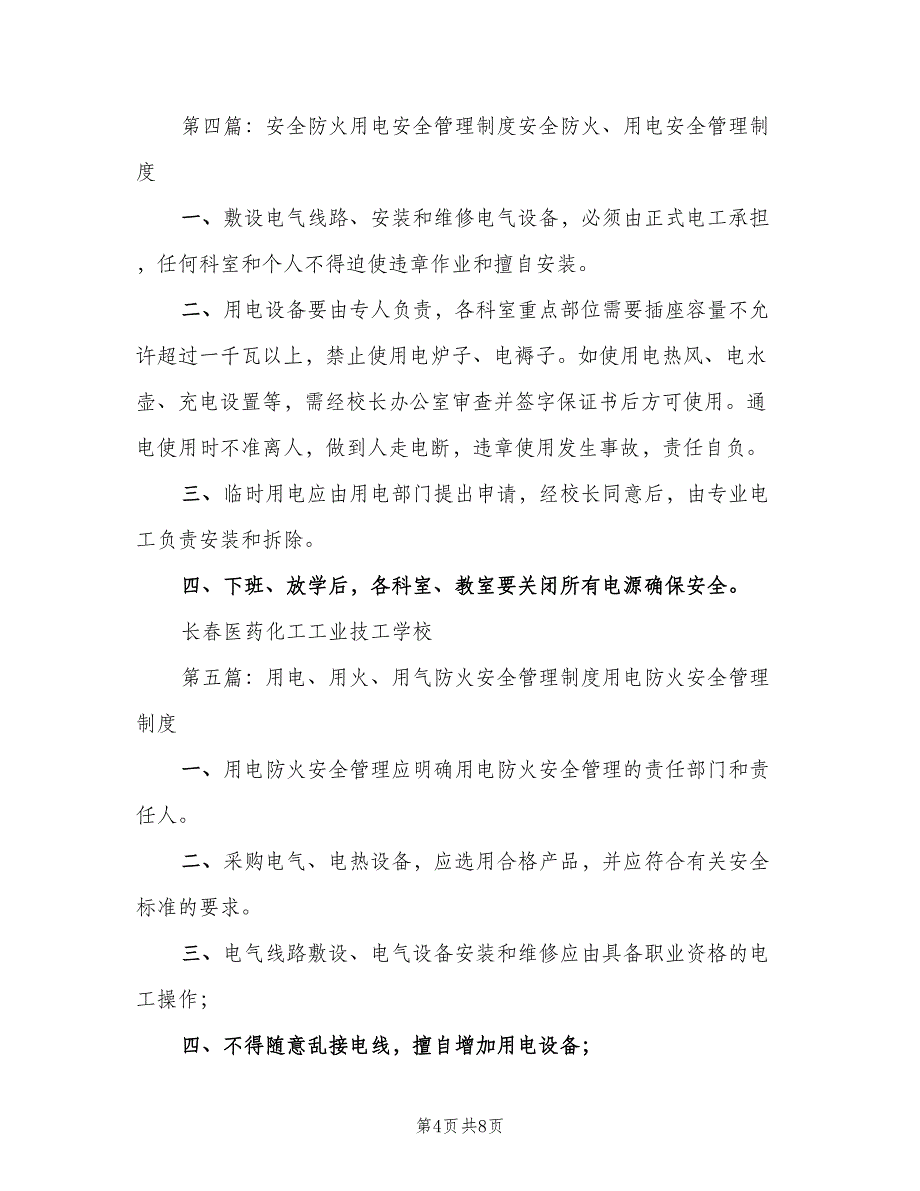 第四篇：安全防火用电安全管理制度安全防火、用电安全管理制
度
一、敷设电气线路、安装和维修电气设备，必须由正式电工承担
，任何科室和个人不得迫使违章作业和擅自安装。
二、用电设备要由专人负责，各科室重点部位需要插座容量不允
许超过一千瓦以上，禁止使用电炉子、电褥子。如使用电热风、电水
壶、充电设置等，需经校长办公室审查并签字保证书后方可使用。通
电使用时不准离人，做到人走电断，违章使用发生事故，责任自负。
三、临时用电应由用电部门提出申请，经校长同意后，由专业电
工负责安装和拆除。
四、下班、放学后，各科室、教室要关闭所有电源确保安全。
长春医药化工工业技工学校
第五篇：用电、用火、用气防火安全管理制度用电防火安全管理
制度
一、用电防火安全管理应明确用电防火安全管理的责任部门和责
任人。
二、采购电气、电热设备，应选用合格产品，并应符合有关安全
标准的要求。
三、电气线路敷设、电气设备安装和维修应由具备职业资格的电
工操作；
四、不得随意乱接电线，擅自增加用电设备；
第4页 共8页